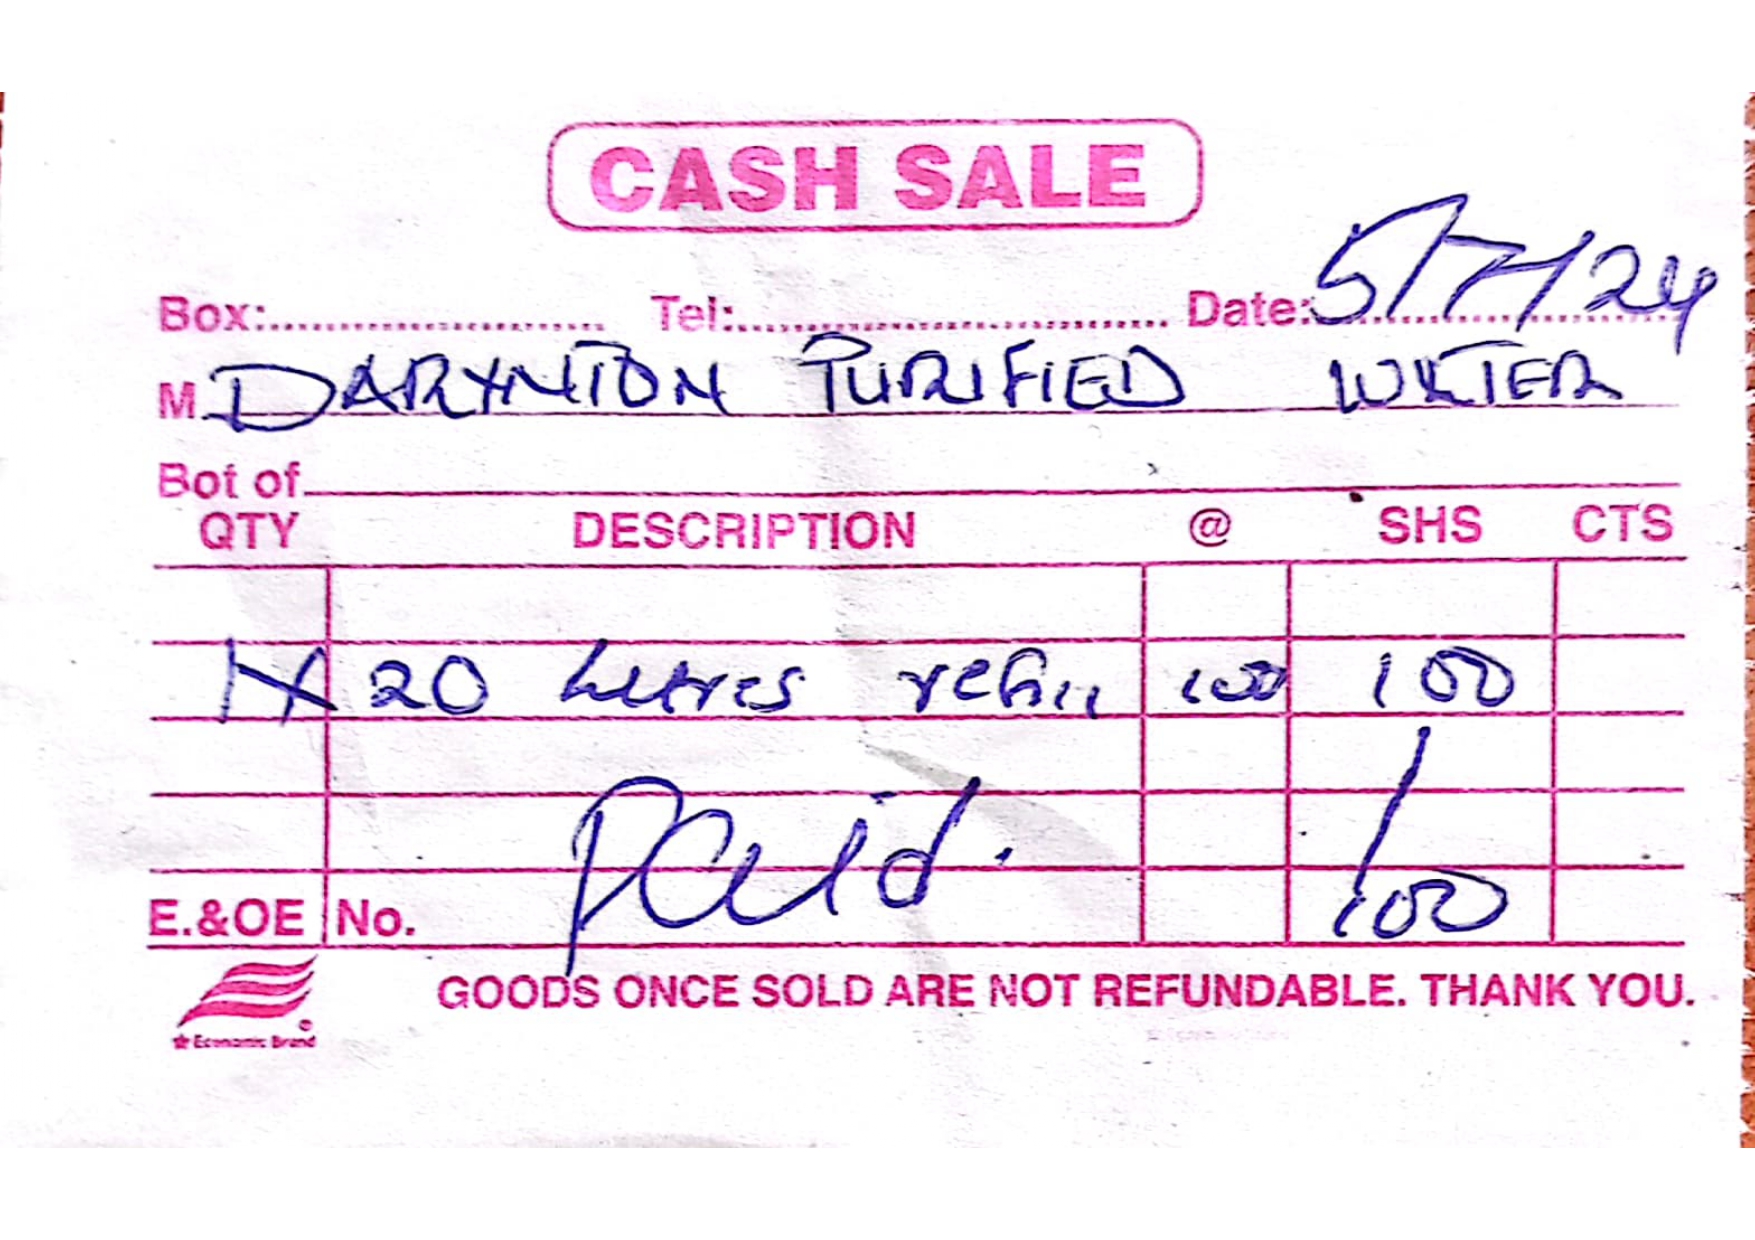 CASH SALE
Box:.............................. Tel:.............................. Date: 5/7/24
M. DARYNTON PURIFIED WATER
Bot of
QTY DESCRIPTION @ SHS CTS
1X 20 Litres refill 100 100
Paid.
E.&OE No. 100
GOODS ONCE SOLD ARE NOT REFUNDABLE. THANK YOU.
Economic Brand